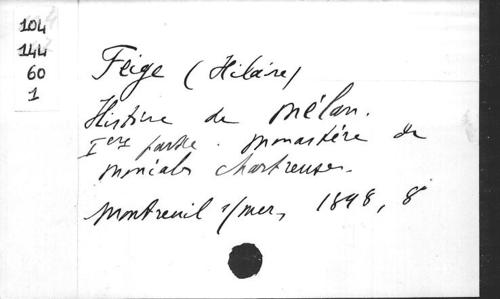 104
144
60
1
Feige (Hilaire)
Histoire de Mélan.
Iere partie. Monastère de
moniales chartreuses.
Montreuil s/mer, 1898, 8°